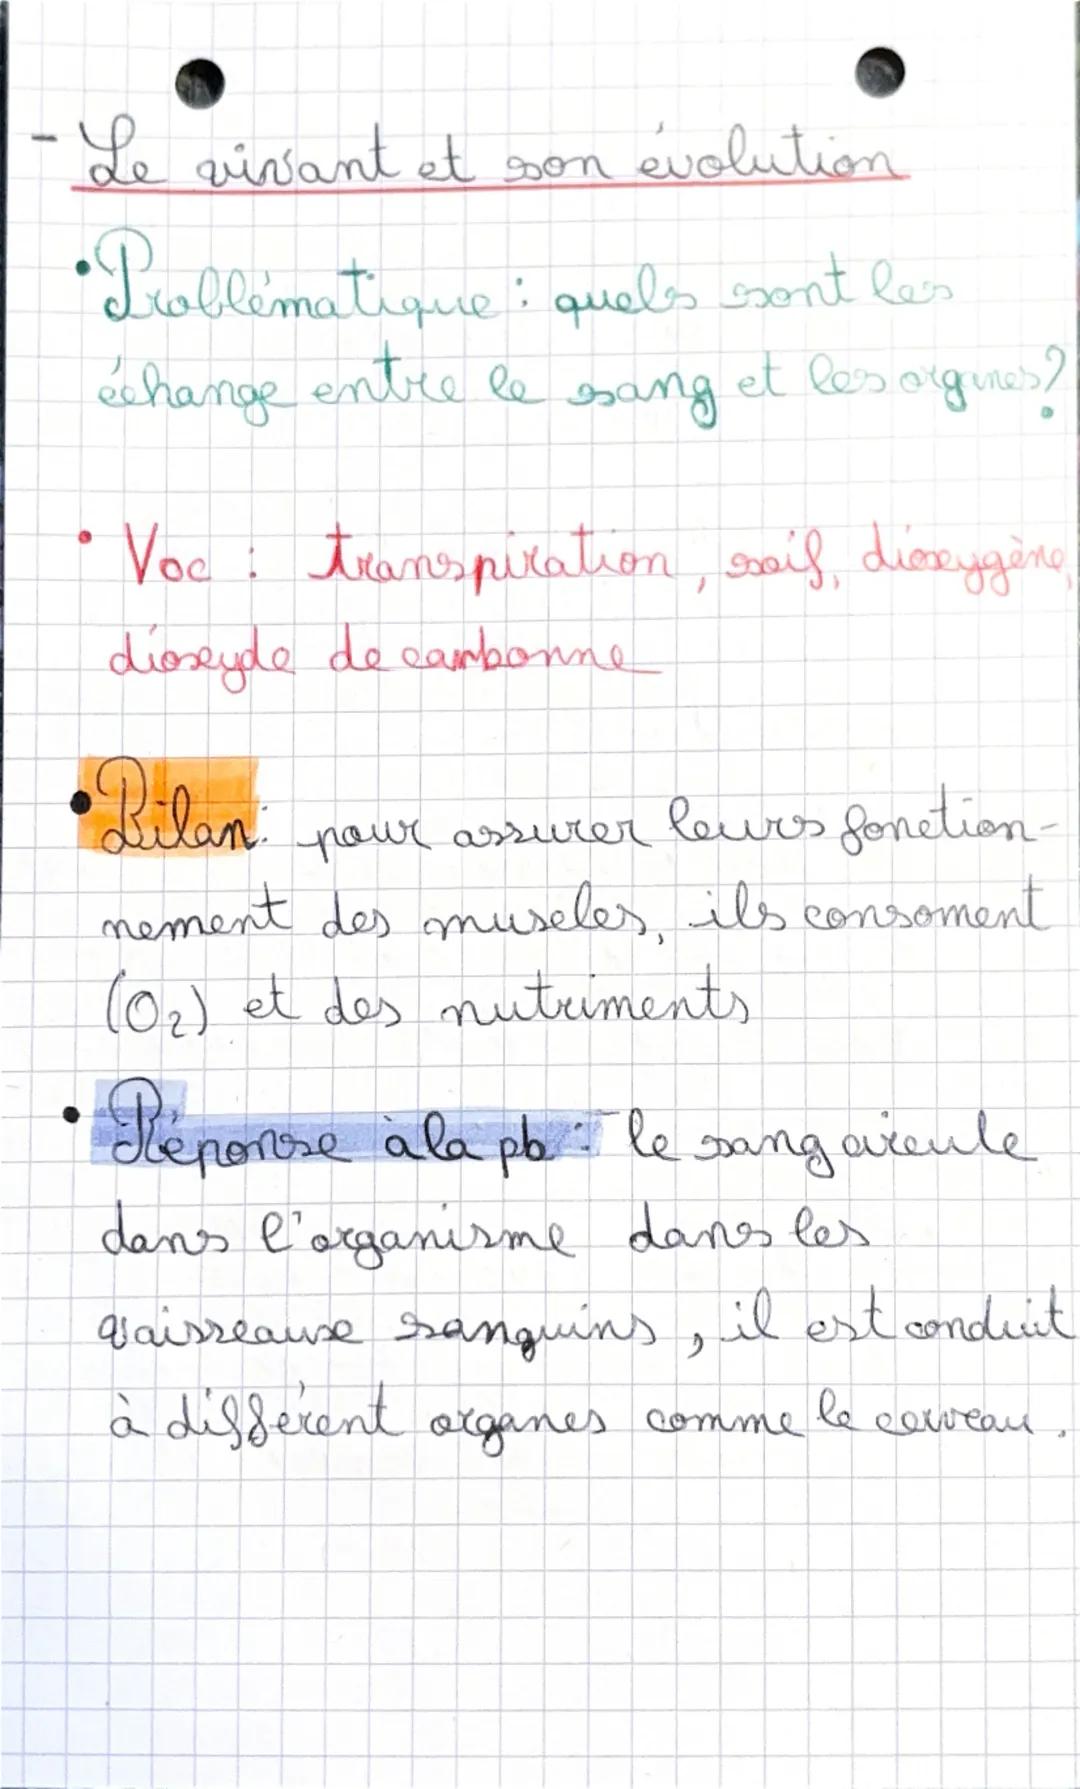 - Le vivant et son évolution
• Problématique : quels sont les
échange entre le sang et les organes ?
• Voc : transpiration, soif, dioxygène,
dioxyde de carbonne
• Bilan : pour assurer leurs fonction-
nement des muscles, ils consoment
(O₂) et des nutriments
• Réponse à la pb : le sang circule
dans l'organisme dans les
vaisseaux sanguins, il est conduit
à différent organes comme le cerveau.